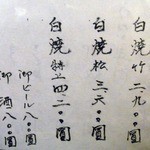 白焼竹二、九〇〇圓
白焼松三、六〇〇圓
白焼特上四、二〇〇圓
御ビール八〇〇圓
御酒八〇〇圓